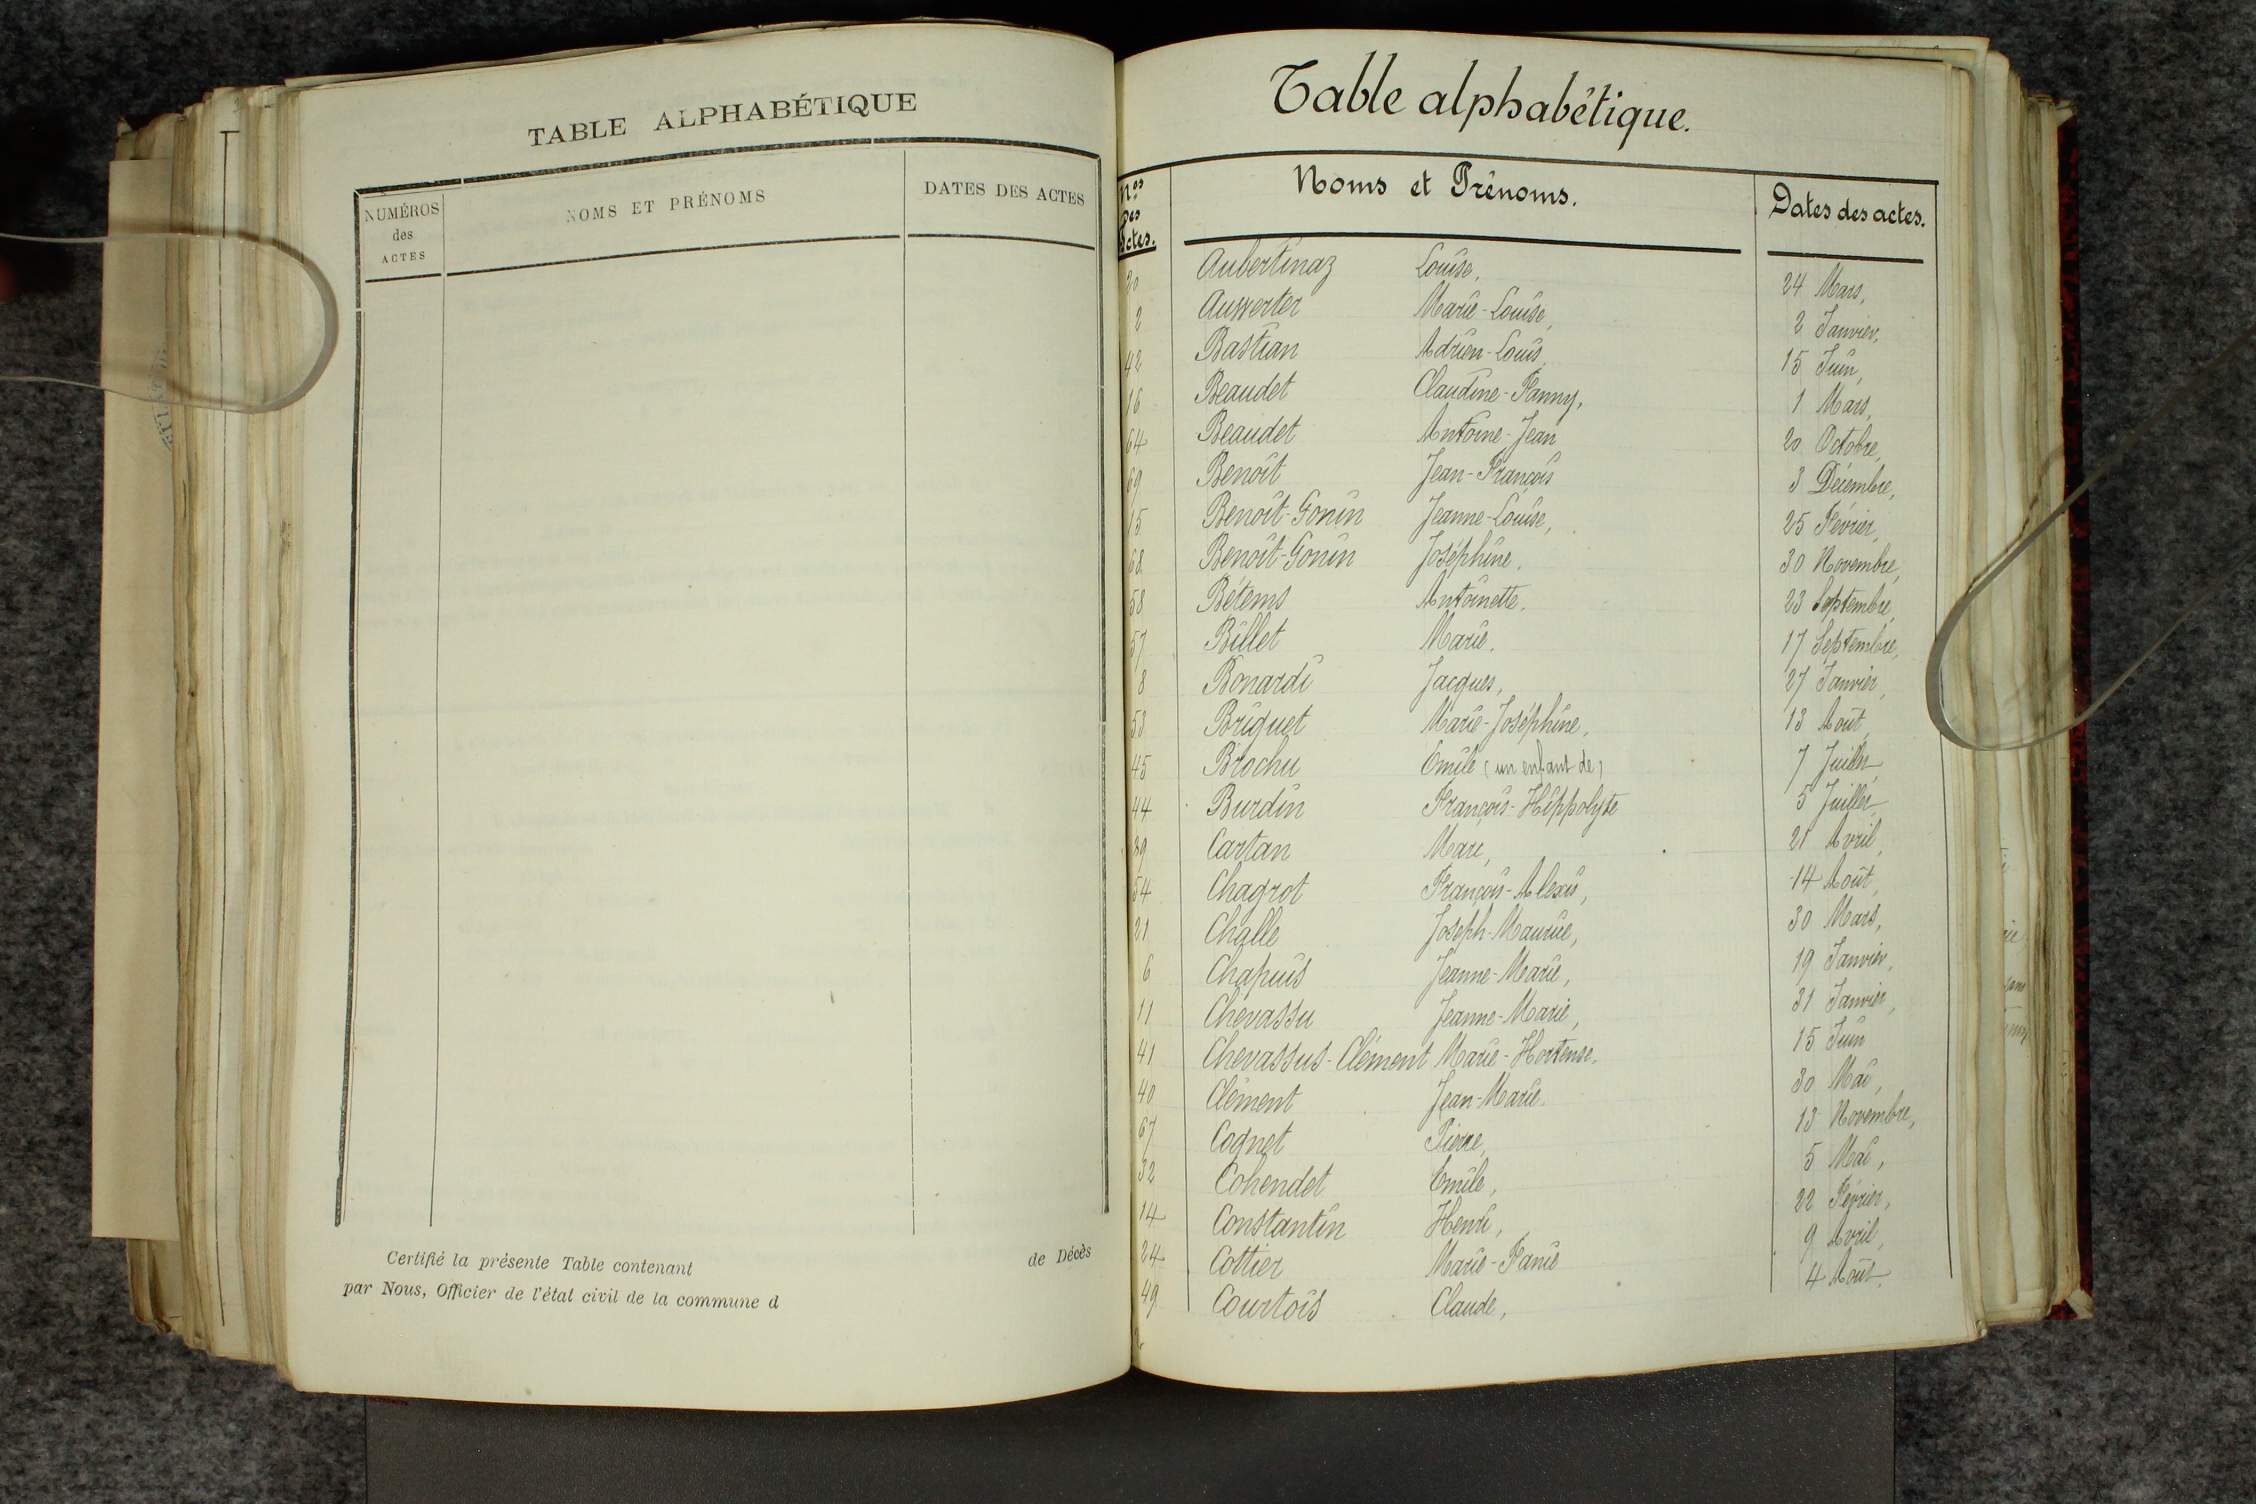 TABLE ALPHABÉTIQUE
NUMÉROS des ACTES NOMS ET PRÉNOMS DATES DES ACTES
Certifié la présente Table contenant de Décès
par Nous, Officier de l'état civil de la commune d
Table alphabétique.
Nos des actes. Noms et Prénoms. Dates des actes.
20 Aubertinaz Louise, 24 Mars,
2 Auwerter Marie-Louise, 2 Janvier,
42 Bastian Adrien-Louis, 15 Juin,
16 Beaudet Claudine-Fanny, 1 Mars,
64 Beaudet Antoine-Jean 20 Octobre,
69 Benoît Jean-François 3 Décembre,
15 Benoît-Gonin Jeanne-Louise, 25 Février,
68 Benoît-Gonin Joséphine. 30 Novembre,
58 Bétems Antoinette. 23 Septembre,
57 Billet Marie. 17 Septembre,
8 Bonardi Jacques, 27 Janvier,
53 Briquet Marie-Joséphine. 13 Août,
45 Brochu Emile (un enfant de) 7 Juillet,
44 Burdin François-Hippolyte 5 Juillet,
29 Cartan Marc, 21 Avril,
54 Chagrot François-Alexis, 14 Août,
21 Challe Joseph-Maurice, 30 Mars,
6 Chapuis Jeanne-Marie, 19 Janvier,
11 Chevassu Jeanne-Marie, 31 Janvier,
41 Chevassus-Clément Marie-Hortense. 15 Juin
40 Clément Jean-Marie. 30 Mai,
67 Cognet Pierre, 13 Novembre,
32 Cohendet Emile, 5 Mai,
14 Constantin Henri, 22 Février,
24 Cottier Marie-Fanie 9 Avril,
49 Courtois Claude, 4 Août.